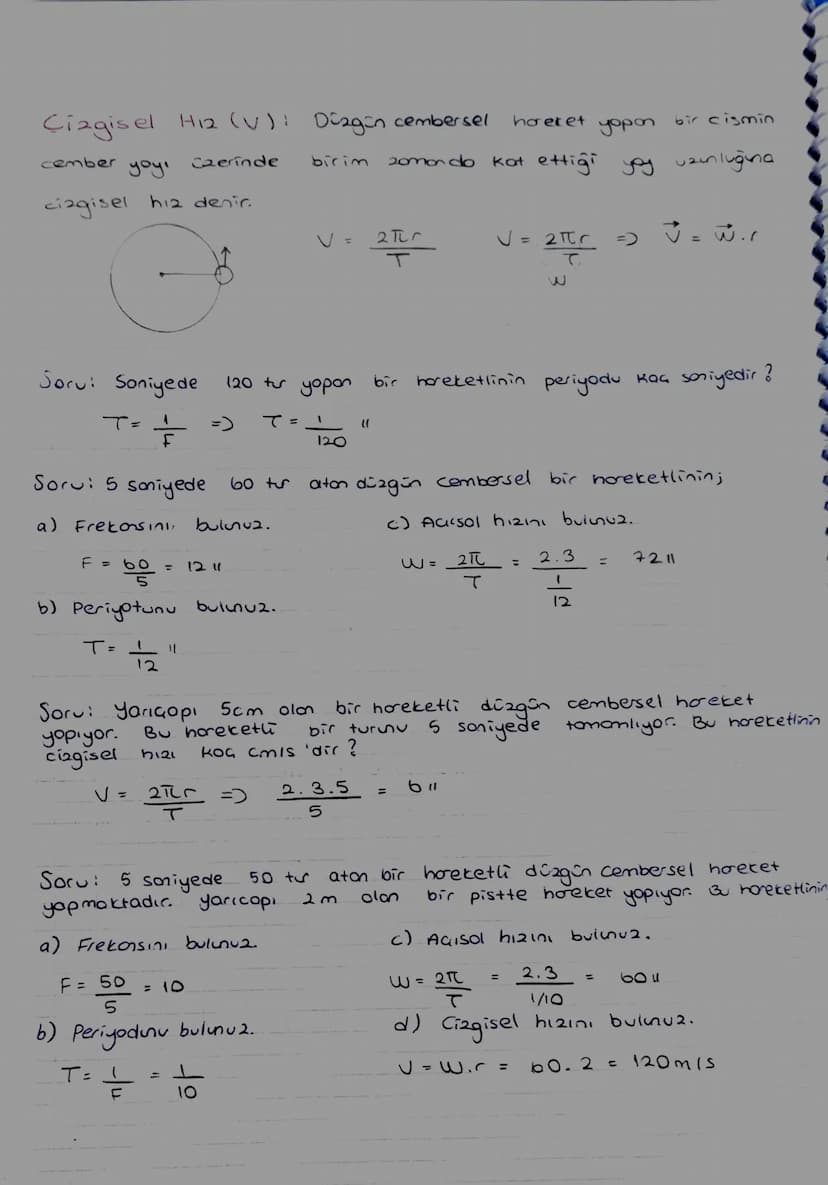 Çizgisel Hız (V): Düzgün çembersel hareket yapan bir cismin
çember yayı üzerinde birim zamanda kat ettiği yay uzunluğuna
çizgisel hız denir.
V = 2πr / T    V = 2πr / T => V⃗ = W⃗.r
W
Soru: Saniyede 120 tur yapan bir hareketlinin periyodu kaç saniyedir?
T = 1 / F => T = 1 / 120 "
Soru: 5 saniyede 60 tur atan düzgün çembersel bir hareketlinin;
a) Frekansını bulunuz.
F = 60 / 5 = 12 "
b) Periyotunu bulunuz.
T = 1 / 12 "
c) Açısal hızını bulunuz.
W = 2π / T = 2.3 / 1/12 = 72 "
Soru: Yarıçapı 5cm olan bir hareketli düzgün çembersel hareket
yapıyor. Bu hareketli bir turunu 5 saniyede tamamlıyor. Bu hareketlinin
çizgisel hızı kaç cm/s 'dir?
V = 2πr / T => 2.3.5 / 5 = 6 "
Soru: 5 saniyede 50 tur atan bir hareketli düzgün çembersel hareket
yapmaktadır. Yarıçapı 2m olan bir pistte hareket yapıyor. Bu hareketlinin
a) Frekansını bulunuz.
F = 50 / 5 = 10
b) Periyodunu bulunuz.
T = 1 / F = 1 / 10
c) Açısal hızını bulunuz.
W = 2π / T = 2.3 / 1/10 = 60 "
d) Çizgisel hızını bulunuz.
V = W.r = 60.2 = 120 m/s